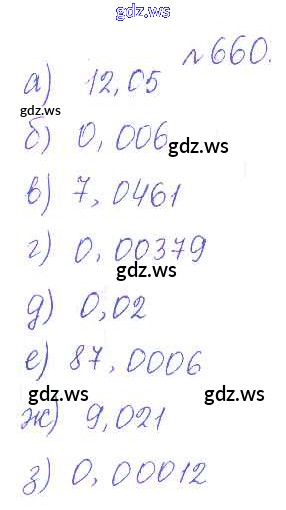 gdz.ws
№660.
а) 12,05
gdz.ws
б) 0,006
gdz.ws
в) 7,0461
г) 0,00379
gdz.ws
д) 0,02
е) 87,0006
gdz.ws gdz.ws
ж) 9,021
з) 0,00012
gdz.ws